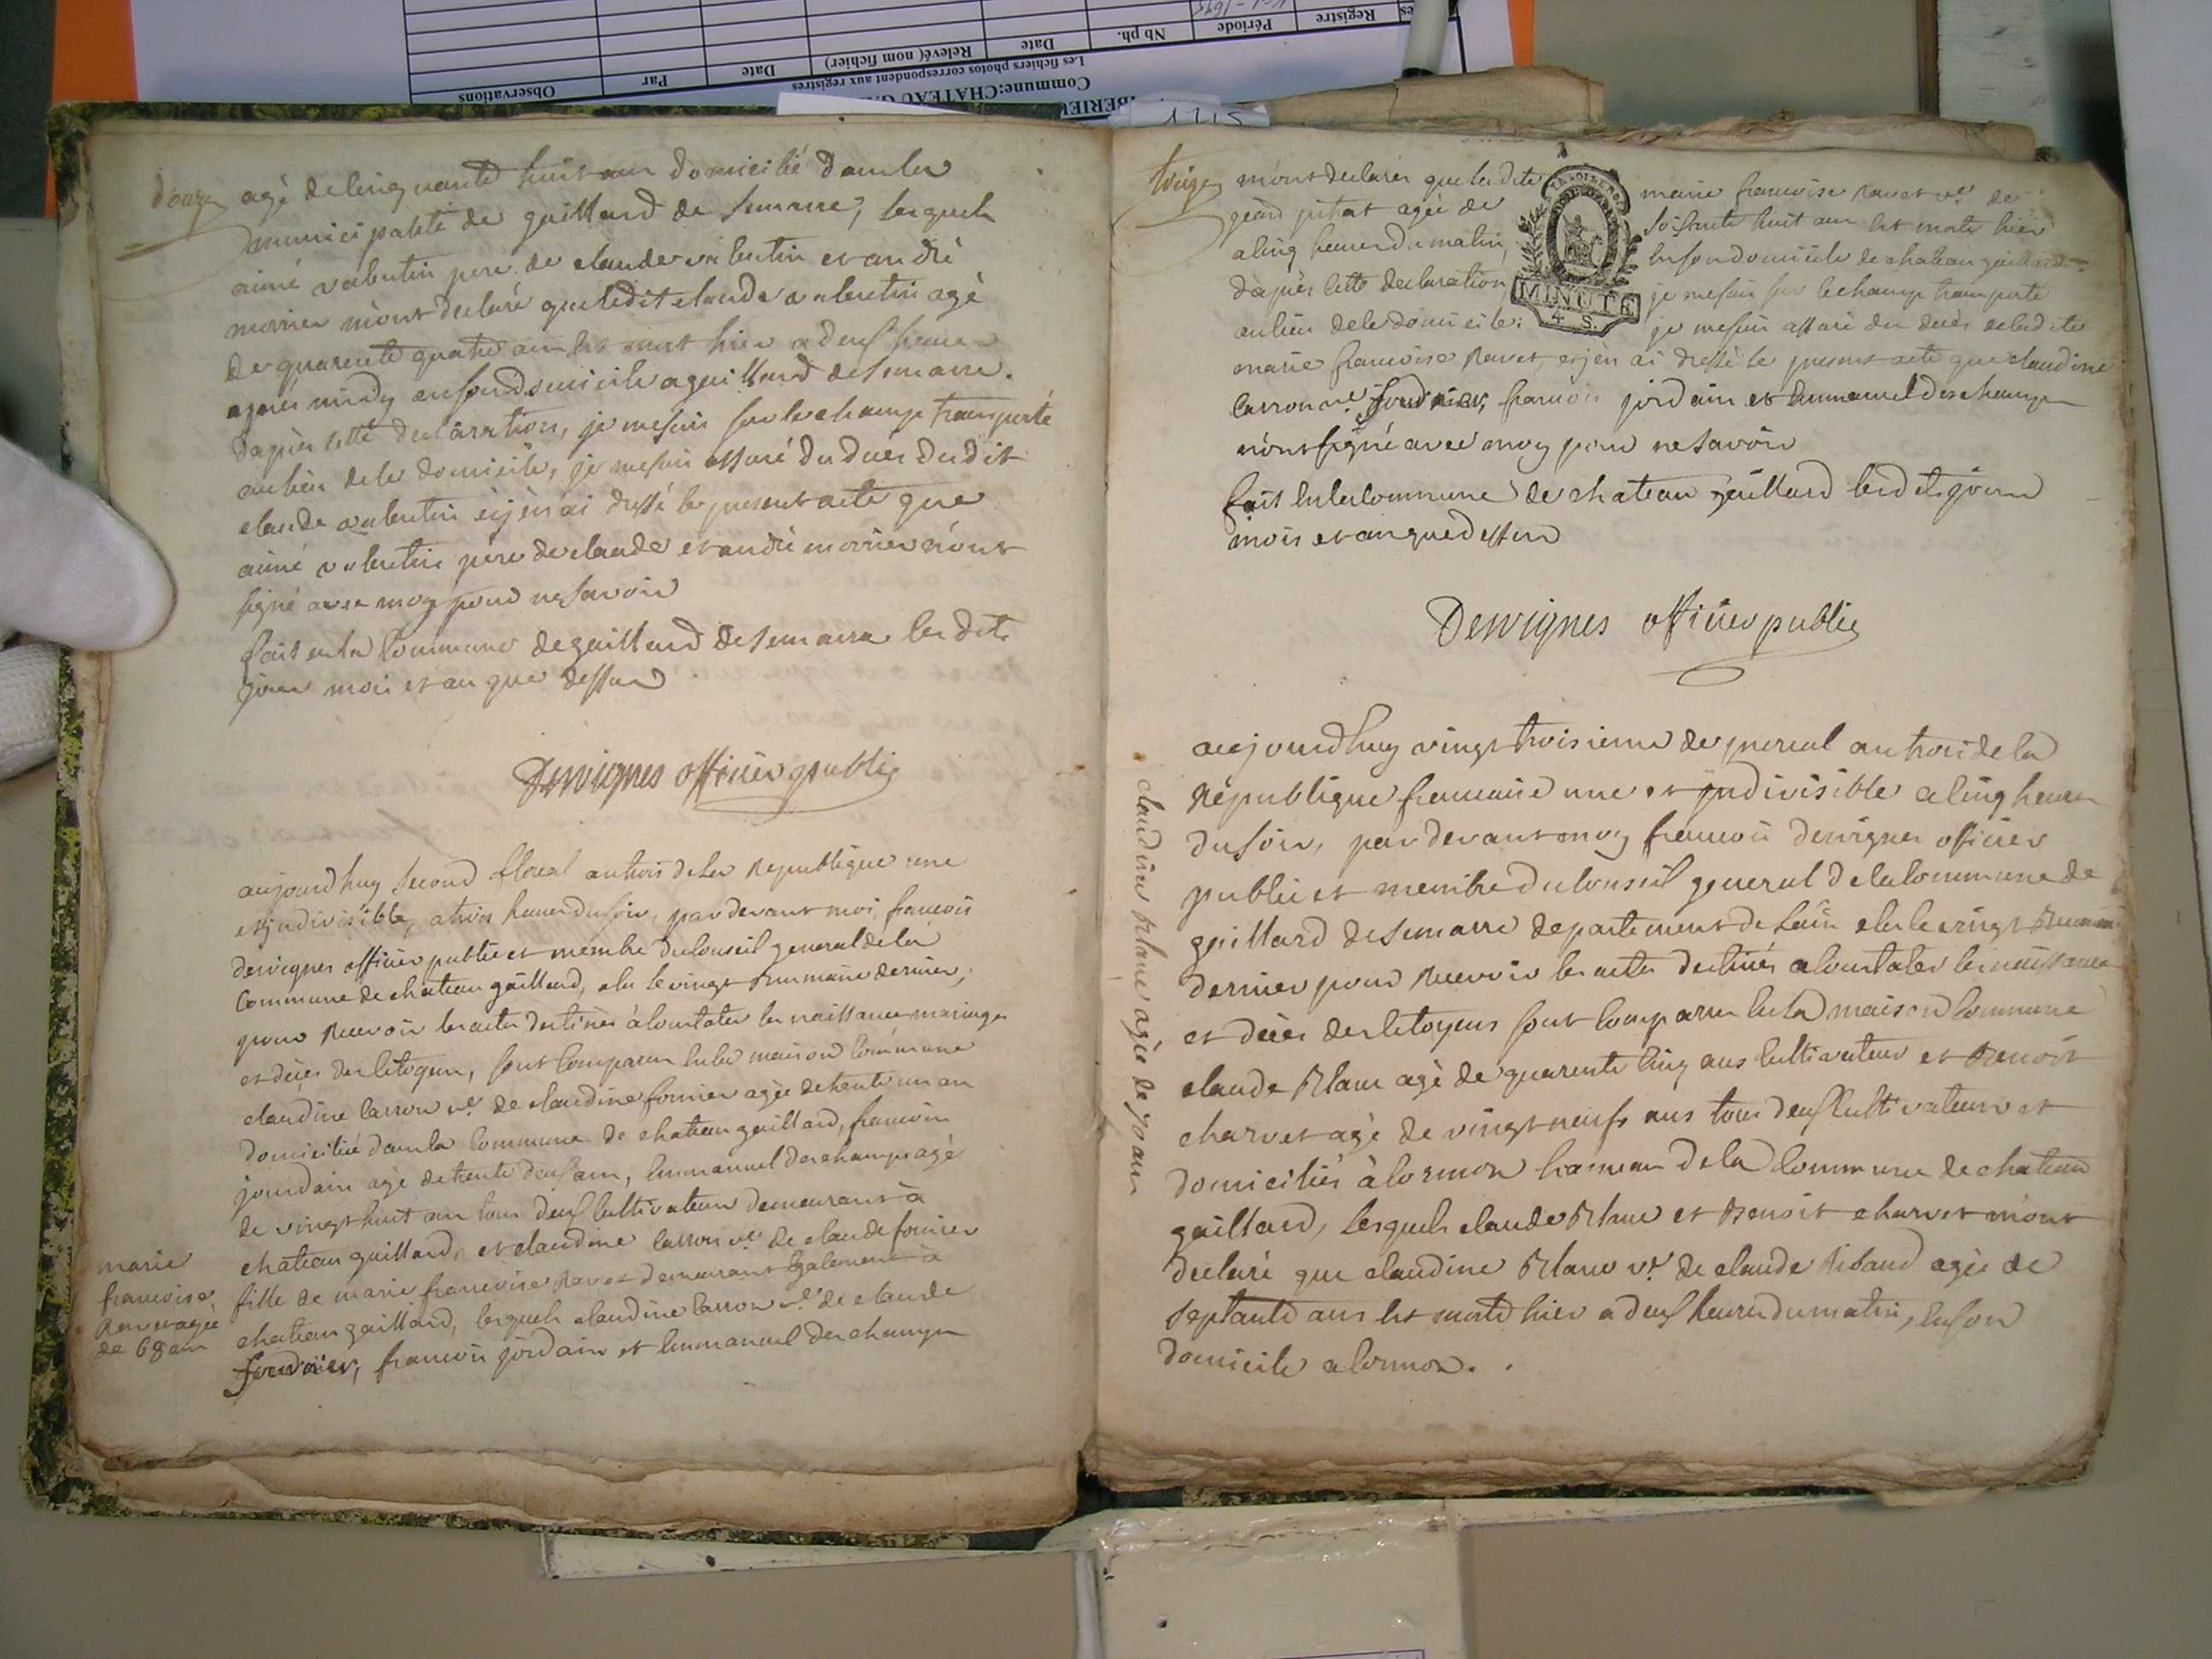 Observations
Par
Date
Relevé( nom fichier)
Date
Nb ph.
Période
Registre
Les fichiers photos correspondent aux registres
Commune:CHATEAU GA
BERIEU
douze
agé de cinquante huit ans domicilié dans la
municipalité de gaillard de semarre, lesquels
aimé valentin pere de claude valentin et andré
morrier m'ont declaré que ledit claude valentin agé
de quarente quatre ans est mort hier a deux heures
apres midy en son domicile a gaillard de semarre.
dapres cette declaration, je me suis sur le champ transporté
au lieu de le domicile, je me suis assuré du décés dudit
claude valentin et j'en ai dressé le present acte que
aimé valentin pere de claude et andré morrier n'ont
signé avec moy pour ne savoir
fait en la commune de gaillard de semarre les dits
jour mois et an que dessus
Desvignes officier public
aujourdhuy second floreal an trois de la Republique une
et indivisible, a trois heures du soir, par devant moi, francois
desvignes officier public et membre du conseil general de la
Commune de chateau gaillard, elu le vingt brumaire dernier,
pour recevoir les actes destinés à constater les naissances mariages
et décès des citoyens, sont comparus en la maison commune
claudine carron ve. de claudine fornier agée de trente un an
domiciliée dans la commune de chateau gaillard, francois
jourdain agé de trente deux ans, emmanuel deschamps agé
de vingt huit ans tous deux cultivateurs demeurants à
chateau gaillard, et claudine carron ve. de claude fornier
fille de marie francoise Ravet demeurant egalement à
chateau gaillard, lesquels claudine carron ve. de claude
fournier, francois jordain et emmanuel deschamps
marie
francoise
Ravet agée
de 68 ans
treize
m'ont declarés que ladite marie francoise Ravet ve. de
pitat agée de soisante huit ans est morte hier
a cinq heures du matin, en son domicile de chateau gaillard.
dapres cette declaration je me suis sur le champ transporté
au lieu de le domicile; je me suis assuré du décés de ladite
MINUTE
4 S.
marie francoise Ravet, et j'en ai dressé le present acte que claudine
carron ve. fournier, francois jordain et emmanuel deschamps
n'ont signé avec moy pour ne savoir
fait en la Commune de chateau gaillard les dits jour
mois et an que dessus
Desvignes officier public
claudine blanc agée de 70 ans
aujourdhuy vingt troisieme de prereal an trois de la
Republique francaise une et indivisible a cinq heures
du soir, par devant moy francois desvignes officier
public et membre du conseil general de la commune de
gaillard de semarre departement de Lain elu le vingt Brumaire
dernier pour recevoir les actes destinés a constater les naissances
et décès des citoyens sont comparus en la maison commune
claude Blanc agé de quarente cinq ans cultivateur et Benoit
charvet agé de vingt neufs ans tous deux cultivateurs et
domiciliés à cormoz hameau de la commune de chateau
gaillard, lesquels claude Blanc et Benoit charvet m'ont
declaré que claudine Blanc ve. de claude Ribaud agée de
septante ans est morte hier a deux heures du matin, en son
domicile a cormoz.